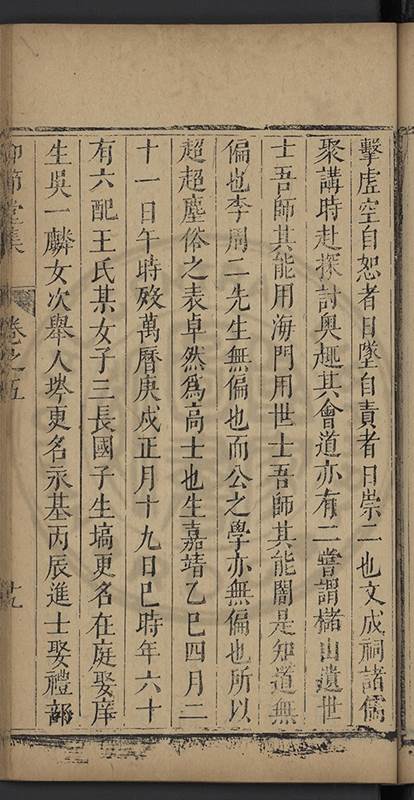 擊虛空自恕者日墜自責者日崇二也文成祠諸儒
聚講時赴探討奧趣其會道亦有二嘗謂櫧山遺世
士吾師其能用海門用世士吾師其能闇是知道無
偏也李周二先生無偏也而公之學亦無偏也所以
超超塵俗之表卓然爲高士也生嘉靖乙巳四月二
十一日午時歿萬曆庚戌正月十九日巳時年六十
有六配王氏某女子三長國子生塙更名在庭娶庠
生吳一麟女次舉人埁更名永基丙辰進士娶禮部
仰節堂集 卷之五 十九